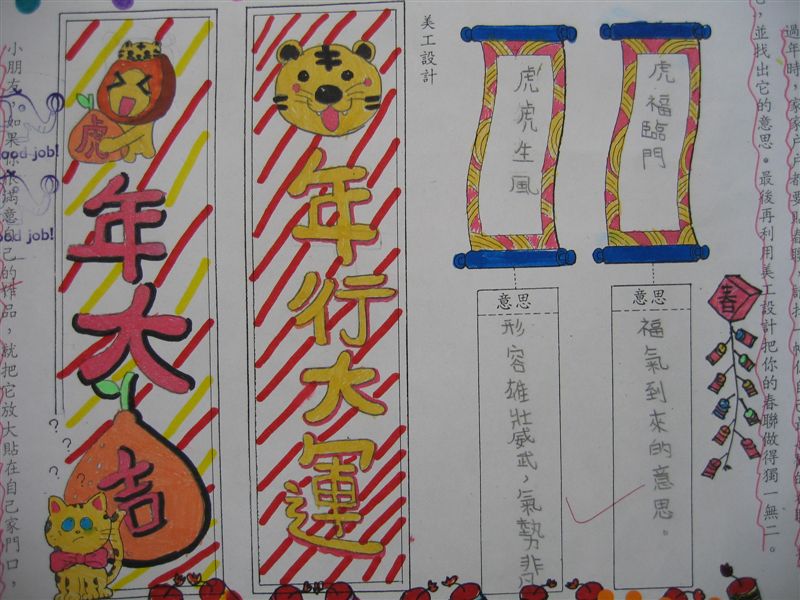 過年時，家家戶戶都要
，並找出它的意思。最後再利用美工設計把你的春聯做得獨一無二。
春
虎福臨門
意思
福氣到來的意思。
虎虎生風
意思
形容雄壯威武，氣勢非
美工設計
年行大運
虎
年大吉
? ? ? ?
小朋友，如果你很滿意自己的作品，就把它放大貼在自己家門口，
ood job!
ood job!